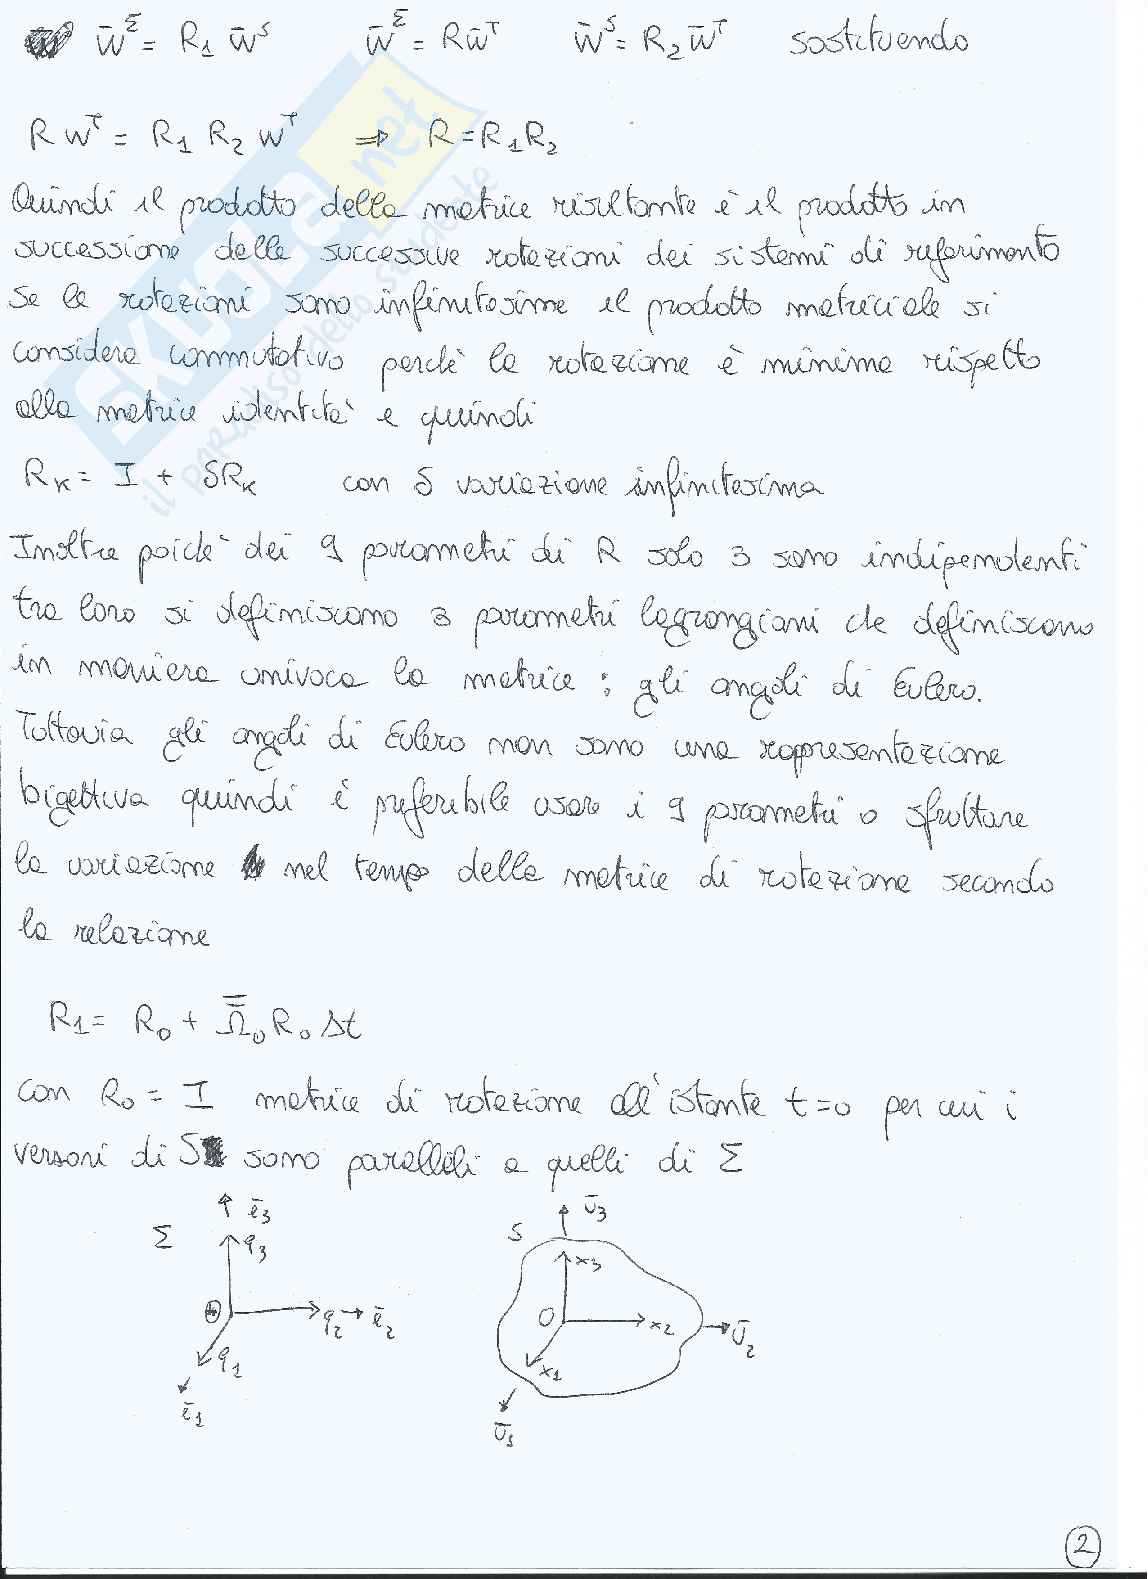 w̄^Σ = R₁ w̄^S   w̄^Σ = R w̄^T   w̄^S = R₂ w̄^T   sostituendo
R w^T = R₁ R₂ w^T   ⇒   R = R₁R₂
Quindi il prodotto della matrice risultante è il prodotto in
successione delle successive rotazioni dei sistemi di riferimento
Se le rotazioni sono infinitesime il prodotto matriciale si
considera commutativo perchè la rotazione è minima rispetto
alla matrice identità e quindi
R_K = I + δR_K   con δ variazione infinitesima
Inoltre poichè dei 9 parametri di R solo 3 sono indipendenti
tra loro si definiscono 3 parametri lagrangiani che definiscono
in maniera univoca la matrice : gli angoli di Eulero.
Tuttavia gli angoli di Eulero non sono una rappresentazione
bigettiva quindi è preferibile usare i 9 parametri o sfruttare
la variazione nel tempo della matrice di rotazione secondo
la relazione
R₁ = R₀ + Ω̿₀ R₀ Δt
con R₀ = I matrice di rotazione all'istante t=0 per cui i
versori di S sono paralleli a quelli di Σ
Σ   ē₃   q₃   q₂   ē₂   q₁   ē₁
S   ū₃   x₃   O   x₂   ū₂   x₁   ū₁
2
SKUOLA.net
il paradiso dello studente